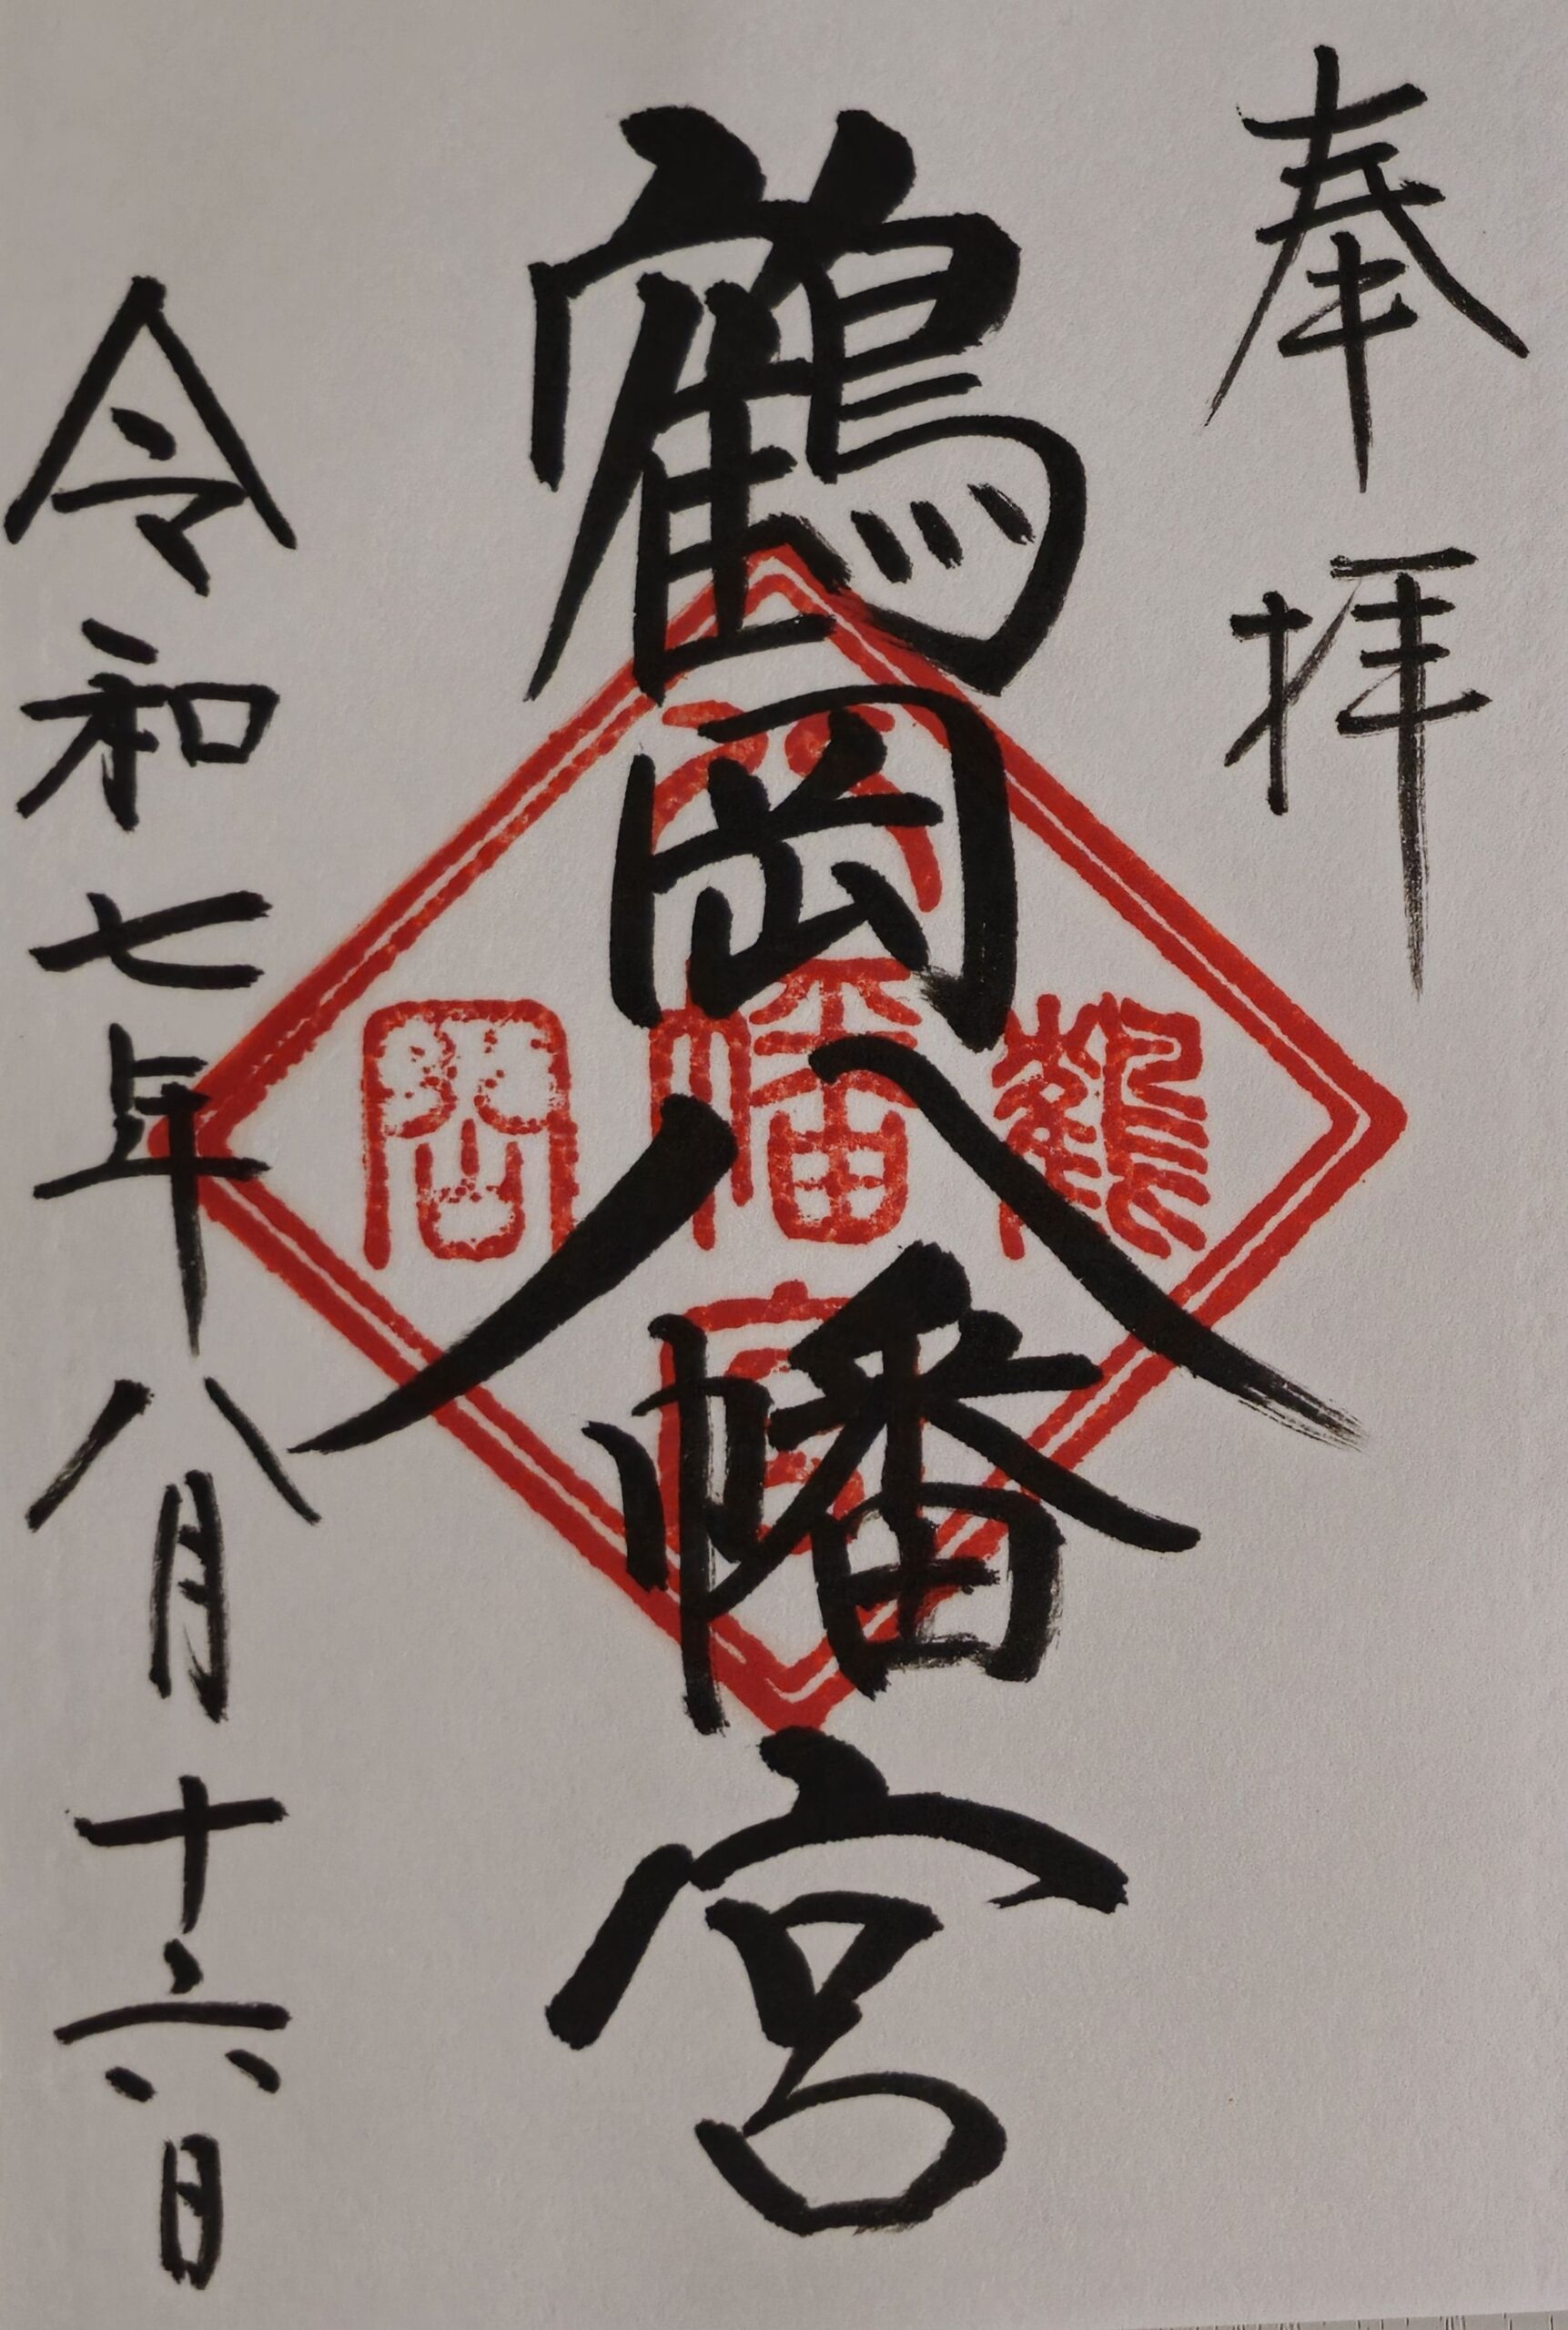 奉拝
鶴岡八幡宮
鶴岡
八幡宮
令和七年八月十六日